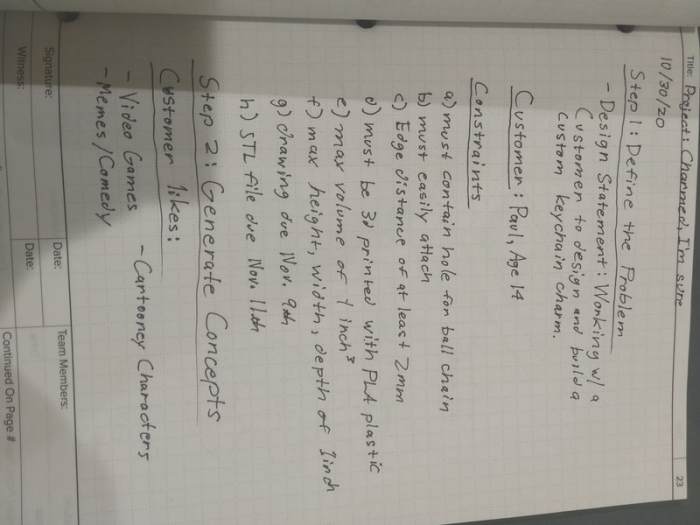 Title: Project: Charmed, I'm sure
23
10/30/20
Step 1: Define the Problem
- Design Statement: Working w/ a
Customer to design and build a
custom keychain charm.
Customer: Paul, Age 14
Constraints
a) must contain hole for ball chain
b) must easily attach
c) Edge distance of at least 2mm
d) must be 3d printed with PLA plastic
e) max volume of 1 inch³
f) max height, width, depth of 1inch
g) drawing due Nov. 9th
h) STL file due Nov. 11th
Step 2: Generate Concepts
Customer likes:
- Video Games - Cartooney Characters
- Memes/Comedy
Signature: Date: Team Members:
Witness: Date: Continued On Page #